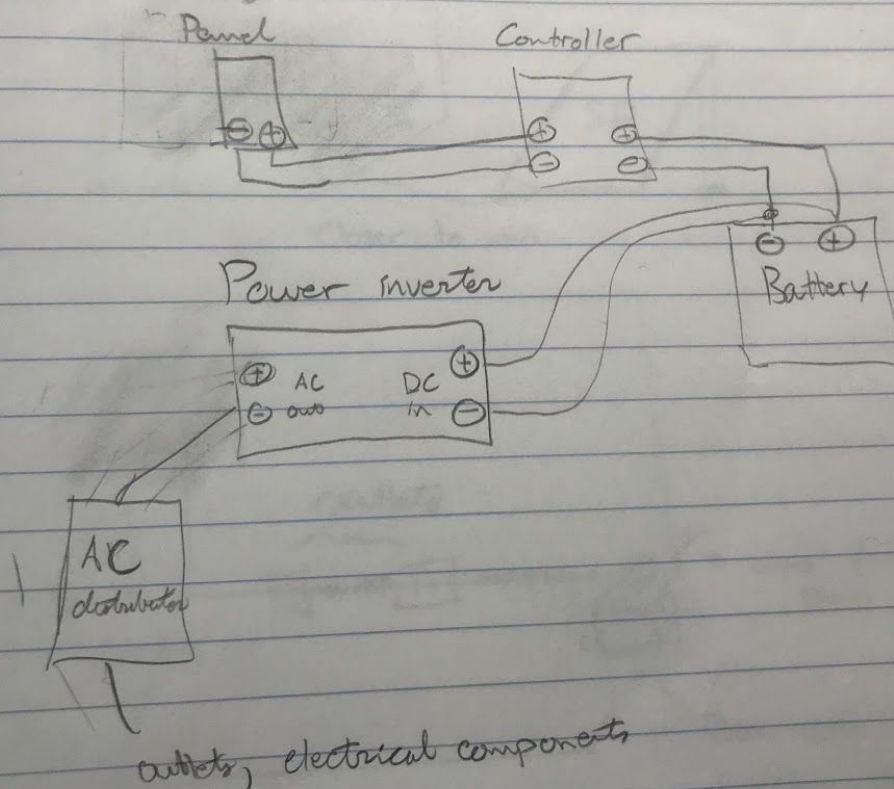 Panel
Controller
⊖ ⊕
⊕ ⊕
⊖ ⊖
⊖ ⊕
Battery
Power inverter
⊕ AC DC ⊕
⊖ out in ⊖
AC
distributor
outlets, electrical components